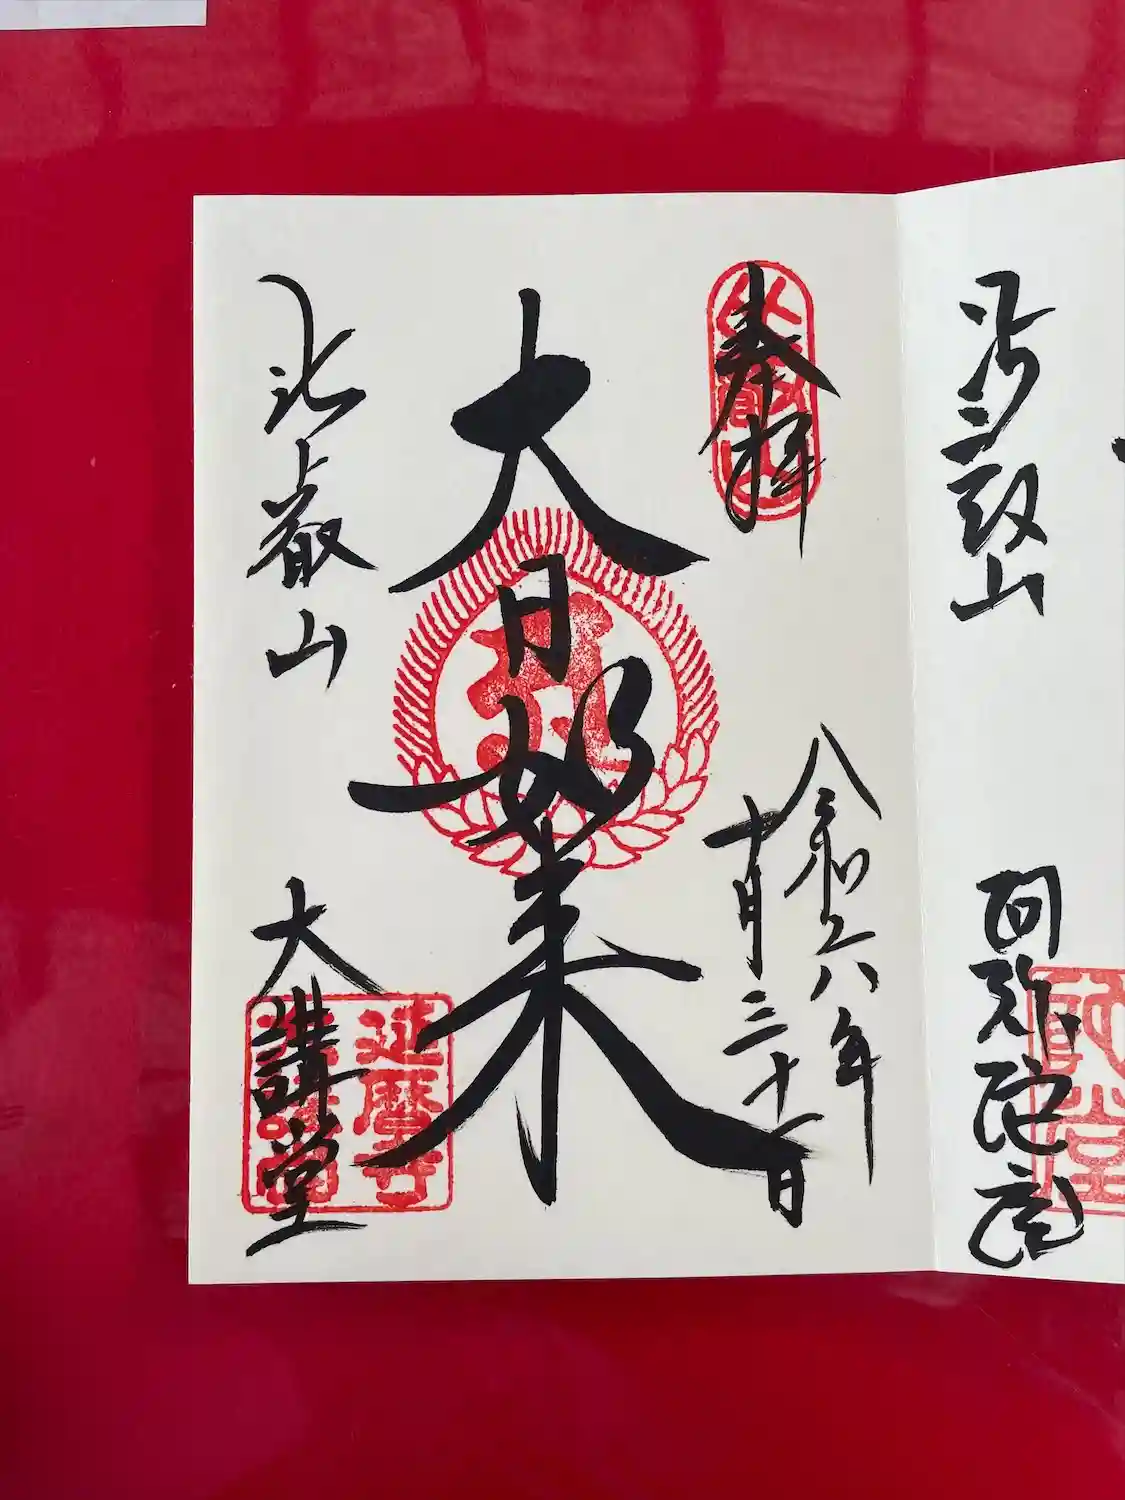 阿弥陀堂
奉拝
令和六年
十月三十一日
大日如来
比叡山
大講堂
比叡山
延暦寺